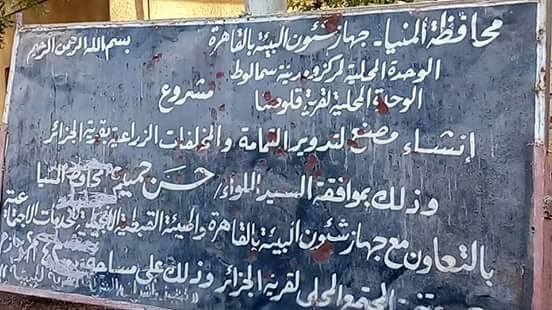 بسم الله الرحمن الرحيم
محافظة المنيا - جهاز شئون البيئة بالقاهرة
الوحدة المحلية لمركز ومدينة سمالوط
الوحدة المحلية لقرية قلوصنا مشروع
إنشاء مصنع لتدوير القمامة والمخلفات الزراعية بقرية الجزائر
وذلك بموافقة السيد اللواء / حسن حميدة محافظ المنيا
بالتعاون مع جهاز شئون البيئة بالقاهرة والهيئة القبطية الإنجيلية للخدمات الاجتماعية
المجتمع المحلى لقرية الجزائر وذلك على مساحة